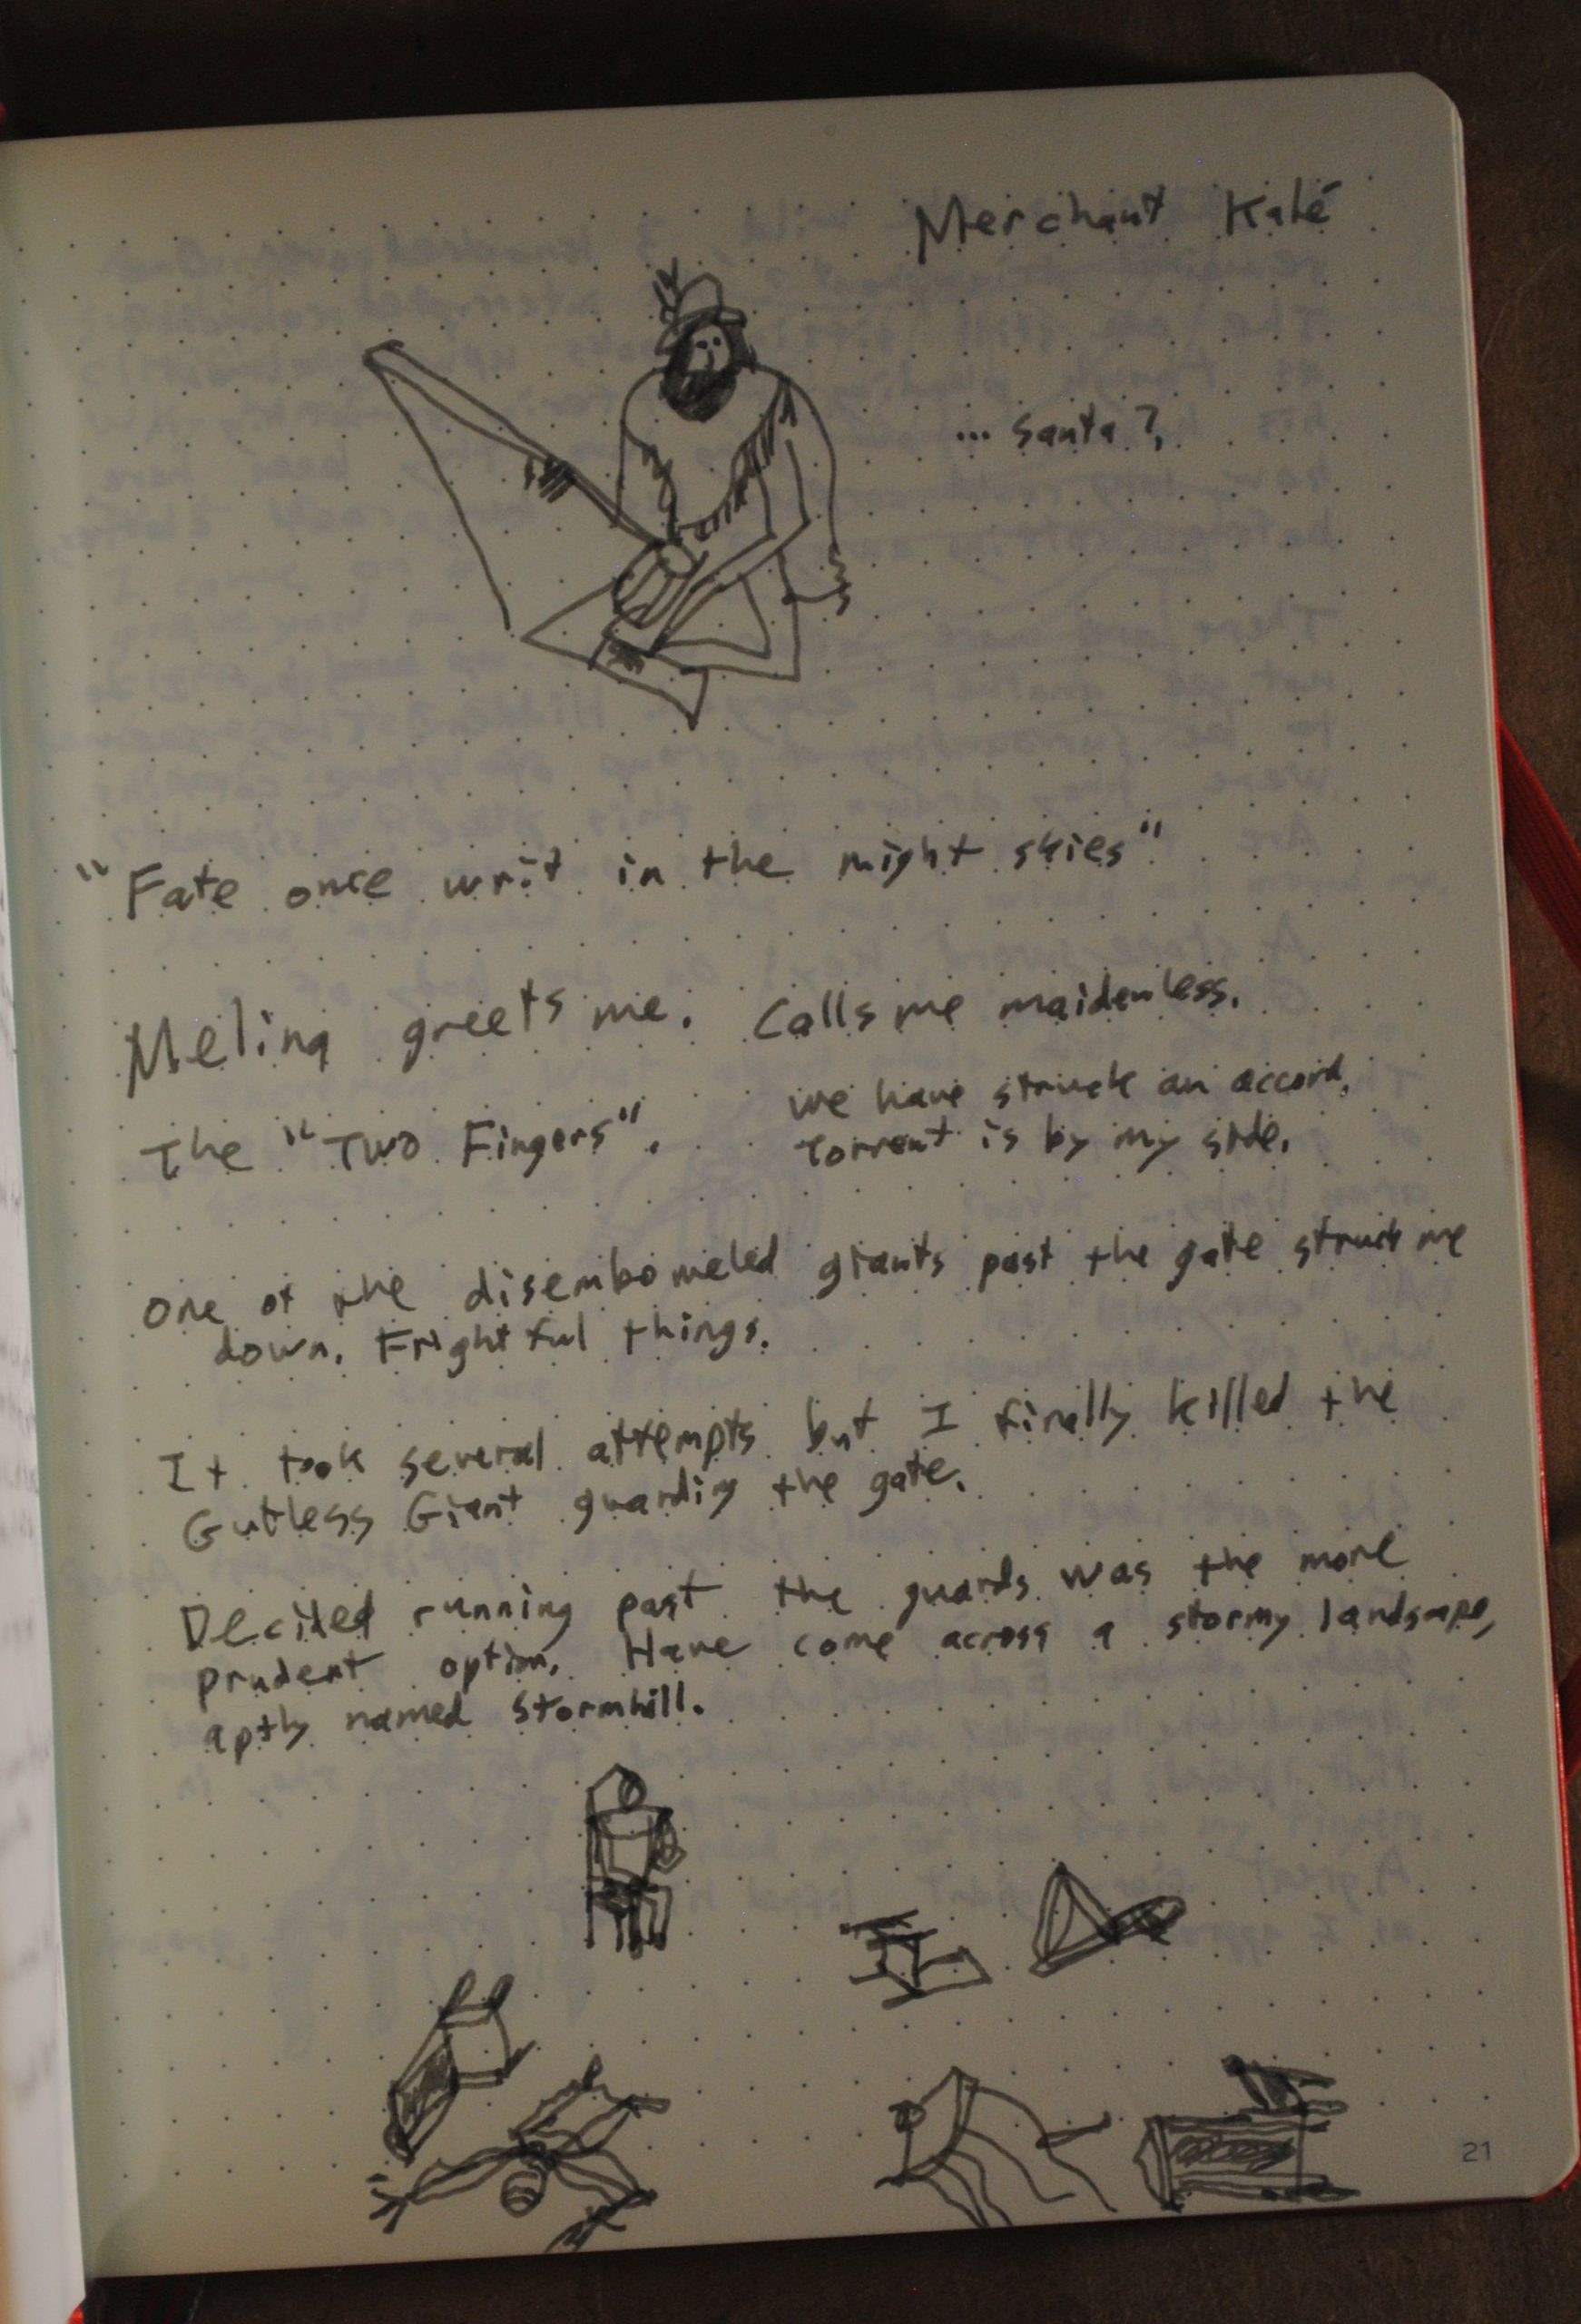 Merchant Kalé
... Santa?
"Fate once writ in the might skies"
Meling greets me. Calls me maidenless.
The "Two Fingers".
We have struck an accord.
Torrent is by my side.
One of the disemboweled giants past the gate struck me
down. Frightful things.
It took several attempts but I finally killed the
Gutless Giant guarding the gate.
Decided running past the guards was the more
prudent option. Have come across a stormy landscape,
aptly named Stormhill.
21